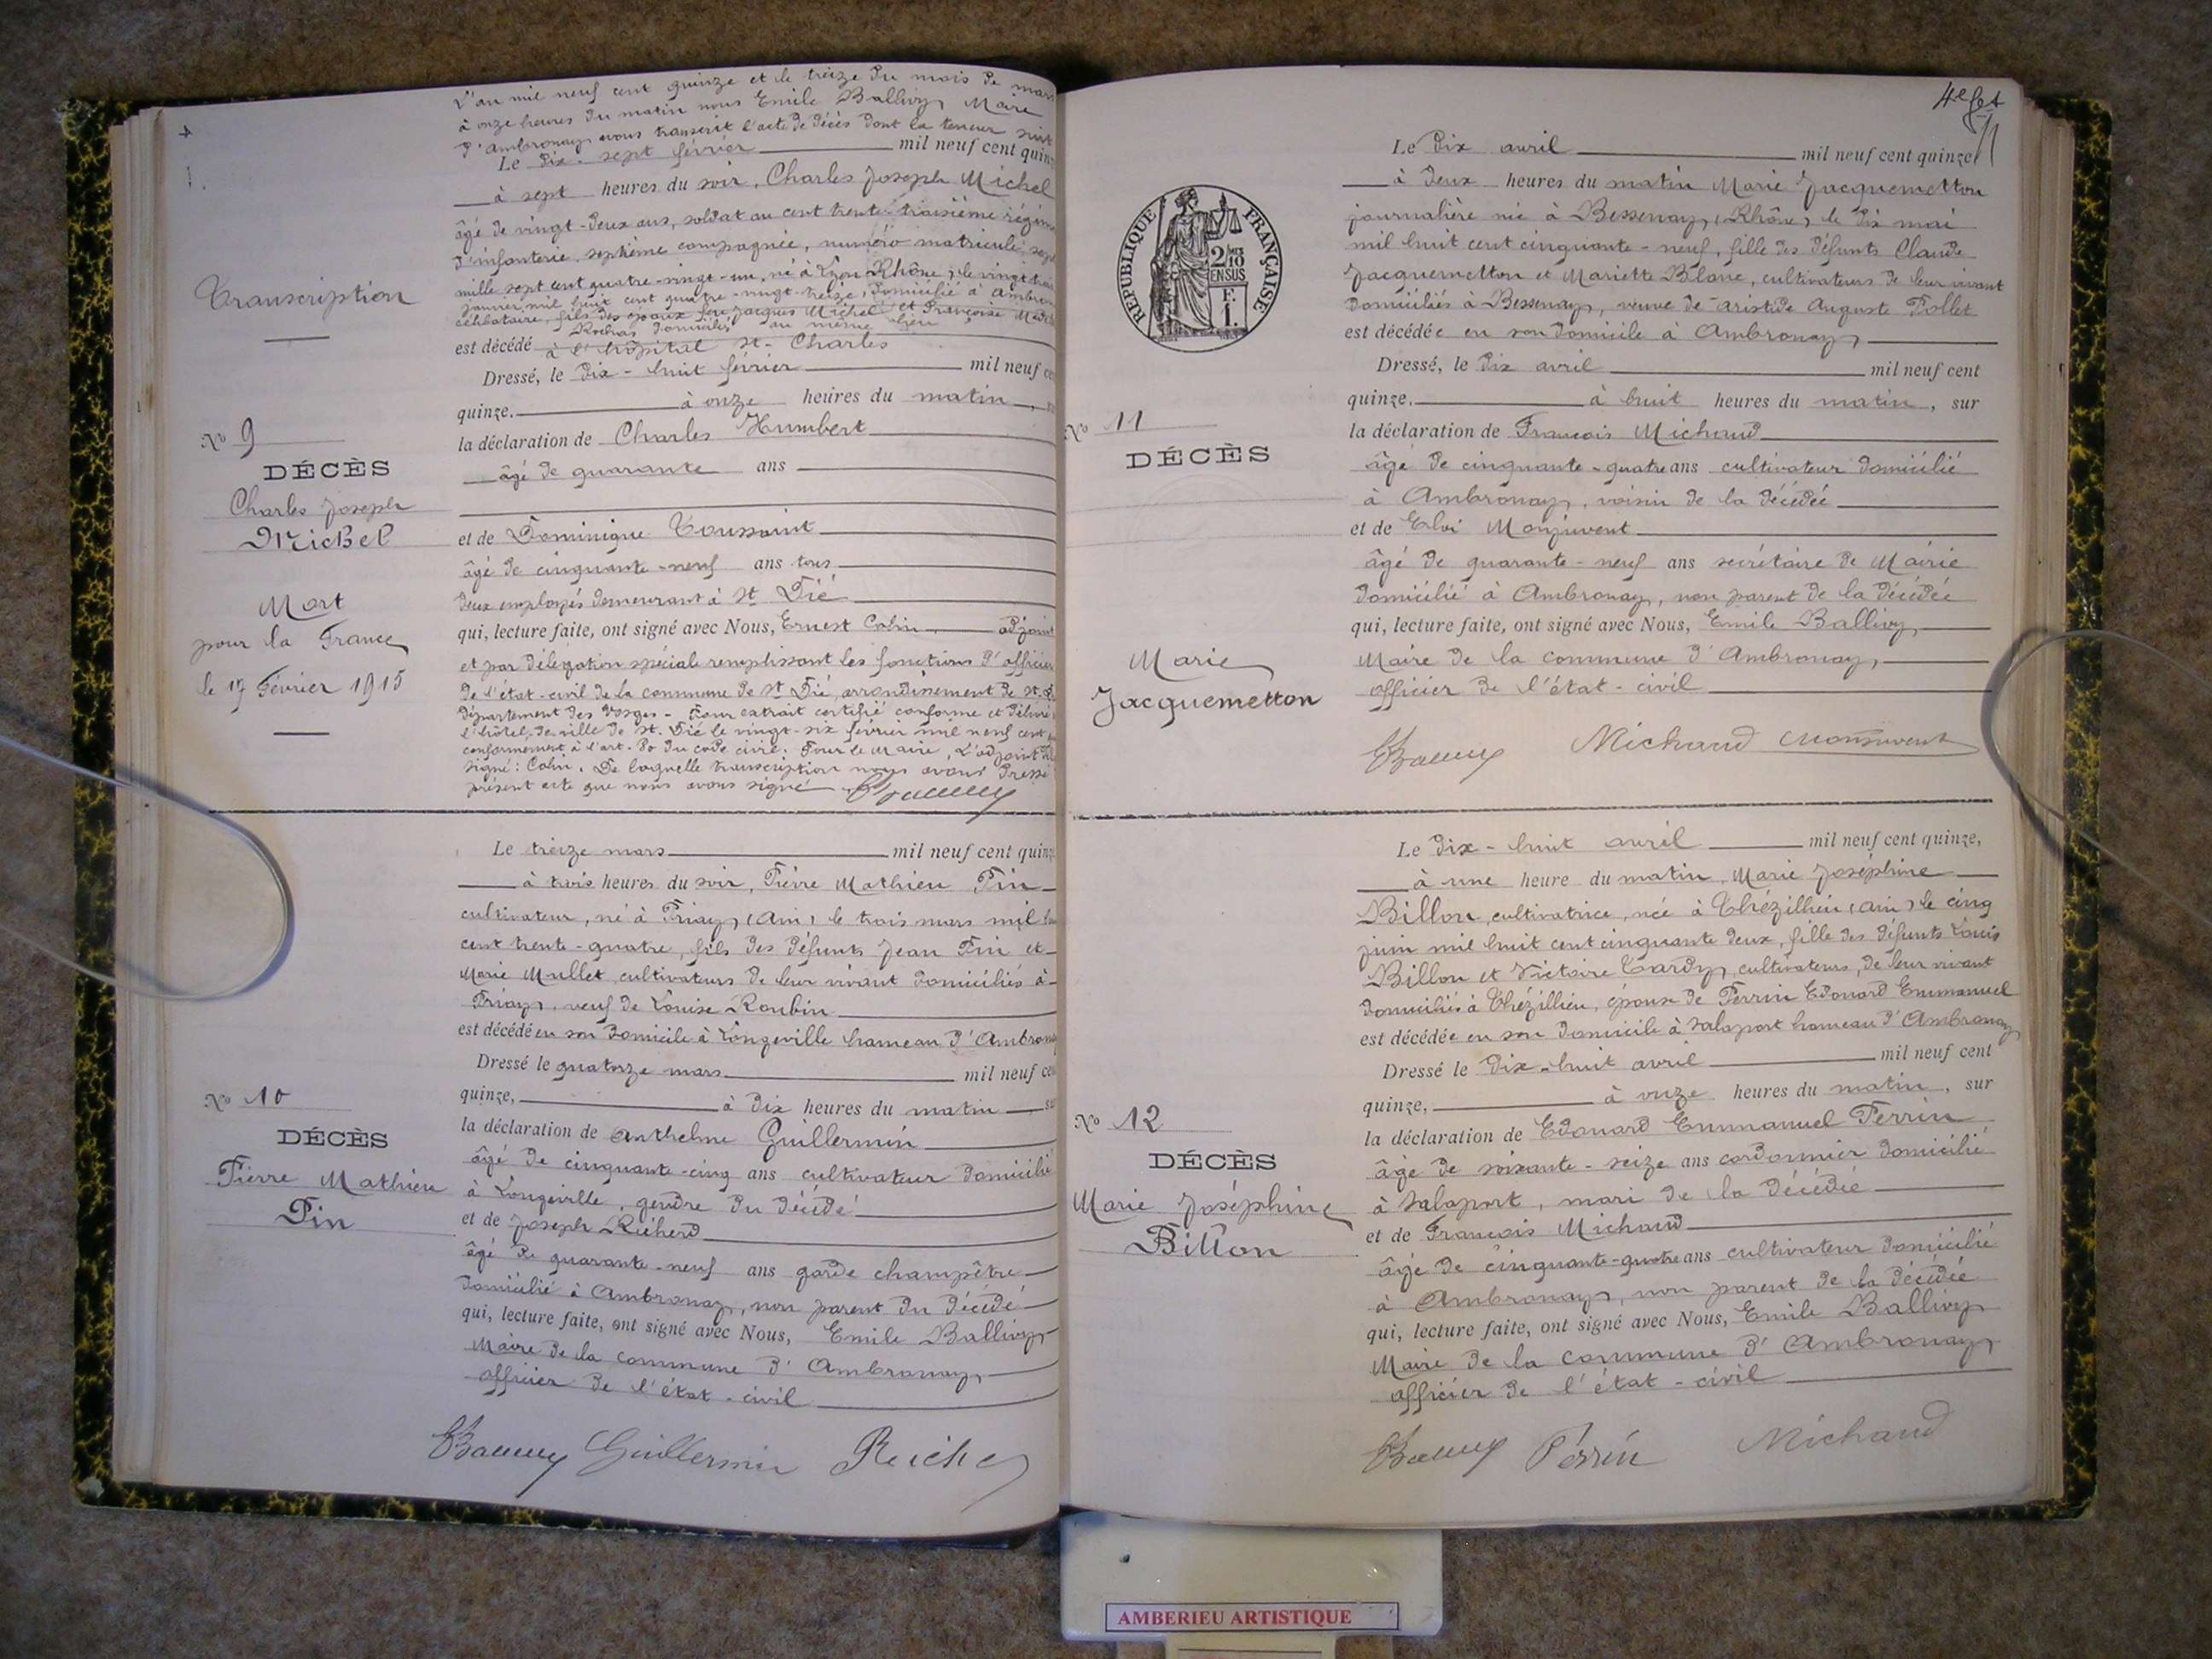 4
Transcription
N° 9
DÉCÈS
Charles Joseph
Michel
Mort
pour la France
le 17 Février 1915
L'an mil neuf cent quinze et le treize du mois de mars
à onze heures du matin nous Emile Ballivy Maire
d'Ambronay avons transcrit l'acte de décès dont la teneur suit
Le dix-sept février mil neuf cent quin
à sept heures du soir, Charles Joseph Michel
âgé de vingt-deux ans, soldat au cent trente-troisième régim
d'infanterie, septième compagnie, numéro matricule sept
mille sept cent quatre-vingt-un, né à Lyon (Rhône) le vingt trois
janvier mil huit cent quatre-vingt-treize, domicilié à Ambron
célibataire, fils des époux feu Jacques Michel et Françoise
Rochas domiciliés au même lieu
est décédé à l'hôpital St-Charles
Dressé, le dix-huit février mil neuf ce
quinze, à onze heures du matin
la déclaration de Charles Humbert
âgé de quarante ans
et de Dominique Toussaint
âgé de cinquante-neuf ans tous
deux employés demeurant à St Dié
qui, lecture faite, ont signé avec Nous, Ernest Colin adjoint
et par délégation spéciale remplissant les fonctions d'officier
de l'état-civil de la commune de St Dié, arrondissement de St.D
département des Vosges - Pour extrait certifié conforme et délivré
l'hôtel de ville de St. Dié le vingt-six février mil neuf cent
conformément à l'art. 80 du code civil. Pour le Maire, L'adjoint
signé: Colin. De laquelle transcription nous avons dressé
présent acte que nous avons signé Ballivy
N° 10
DÉCÈS
Pierre Mathieu
Pin
Le treize mars mil neuf cent quinz
à trois heures du soir, Pierre Mathieu Pin
cultivateur, né à Priay (Ain) le trois mars mil hu
cent trente-quatre, fils des défunts Jean Pin et
Marie Mullet, cultivateurs de leur vivant domiciliés à
Priay, veuf de Louise Roubin
est décédé en son domicile à Longeville hameau d'Ambrona
Dressé le quatorze mars mil neuf ce
quinze, à dix heures du matin su
la déclaration de Anthelme Guillermin
âgé de cinquante-cinq ans cultivateur domicilié
à Longeville, gendre du décédé
et de Joseph Richerd
âgé de quarante-neuf ans garde champêtre
domicilié à Ambronay, non parent du décédé
qui, lecture faite, ont signé avec Nous, Emile Ballivy
Maire de la commune d'Ambronay
officier de l'état-civil
Ballivy Guillermin Riche
4e fet
RÉPUBLIQUE FRANÇAISE
2/10 EN SUS
F.
1.
N° 11
DÉCÈS
Marie
Jacquemetton
Le dix avril mil neuf cent quinze
à deux heures du matin Marie Jacquemetton
journalière née à Bessenay (Rhône) le dix mai
mil huit cent cinquante-neuf, fille des défunts Claude
Jacquemetton et Mariette Blanc, cultivateurs de leur vivant
domiciliés à Bessenay, veuve de Aristide Auguste Pollet
est décédée en son domicile à Ambronay
Dressé, le dix avril mil neuf cent
quinze, à huit heures du matin, sur
la déclaration de François Michaud
âgé de cinquante-quatre ans cultivateur domicilié
à Ambronay, voisin de la décédée
et de Eloi Monjuvent
âgé de quarante-neuf ans secrétaire de Mairie
domicilié à Ambronay, non parent de la décédée
qui, lecture faite, ont signé avec Nous, Emile Ballivy
Maire de la commune d'Ambronay,
officier de l'état-civil
Ballivy Michaud Monjuvent
N° 12
DÉCÈS
Marie Joséphine
Billon
Le dix-huit avril mil neuf cent quinze,
à une heure du matin, Marie Joséphine
Billon, cultivatrice, née à Thézillieu (Ain) le cinq
juin mil huit cent cinquante deux, fille des défunts Louis
Billon et Victoire Tardy, cultivateurs, de leur vivant
domiciliés à Thézillieu, épouse de Perrin Edouard Emmanuel
est décédée en son domicile à Salaport hameau d'Ambronay
Dressé le dix-huit avril mil neuf cent
quinze, à onze heures du matin, sur
la déclaration de Edouard Emmanuel Perrin
âgé de soixante-seize ans cordonnier domicilié
à Salaport, mari de la décédée
et de François Michaud
âgé de cinquante-quatre ans cultivateur domicilié
à Ambronay, non parent de la décédée
qui, lecture faite, ont signé avec Nous, Emile Ballivy
Maire de la commune d'Ambronay
officier de l'état-civil
Ballivy Perrin Michaud
AMBERIEU ARTISTIQUE